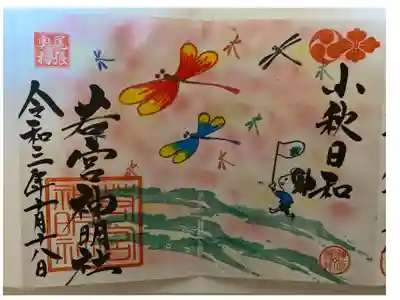 小秋日和
若宮神明社
尾張
奥村
令和三年十月十八日